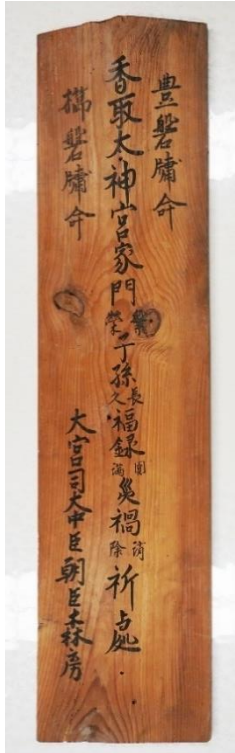 豊磐牖命
香取太神宮家門繁榮子孫長久福録圓満災禍消除祈處
櫛磐牖命
大宮司大中臣朝臣房